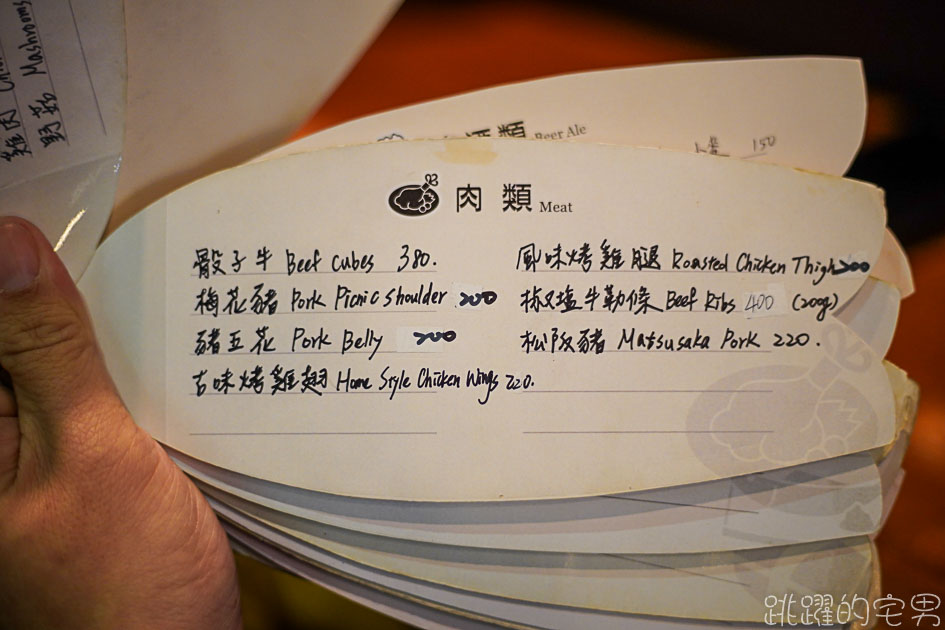 雞肉
野菇 Mashrooms
酒類 Beer Ale
150
肉類 Meat
骰子牛 Beef Cubes 380.
梅花豬 Pork Picnic Shoulder 200
豬五花 Pork Belly 200
古味烤雞翅 Home Style Chicken Wings 220.
風味烤雞腿 Roasted Chicken Thigh 200
椒塩牛肋條 Beef Ribs 400 (200g)
松阪豬 Matsusaka Pork 220.
跳躍的宅男